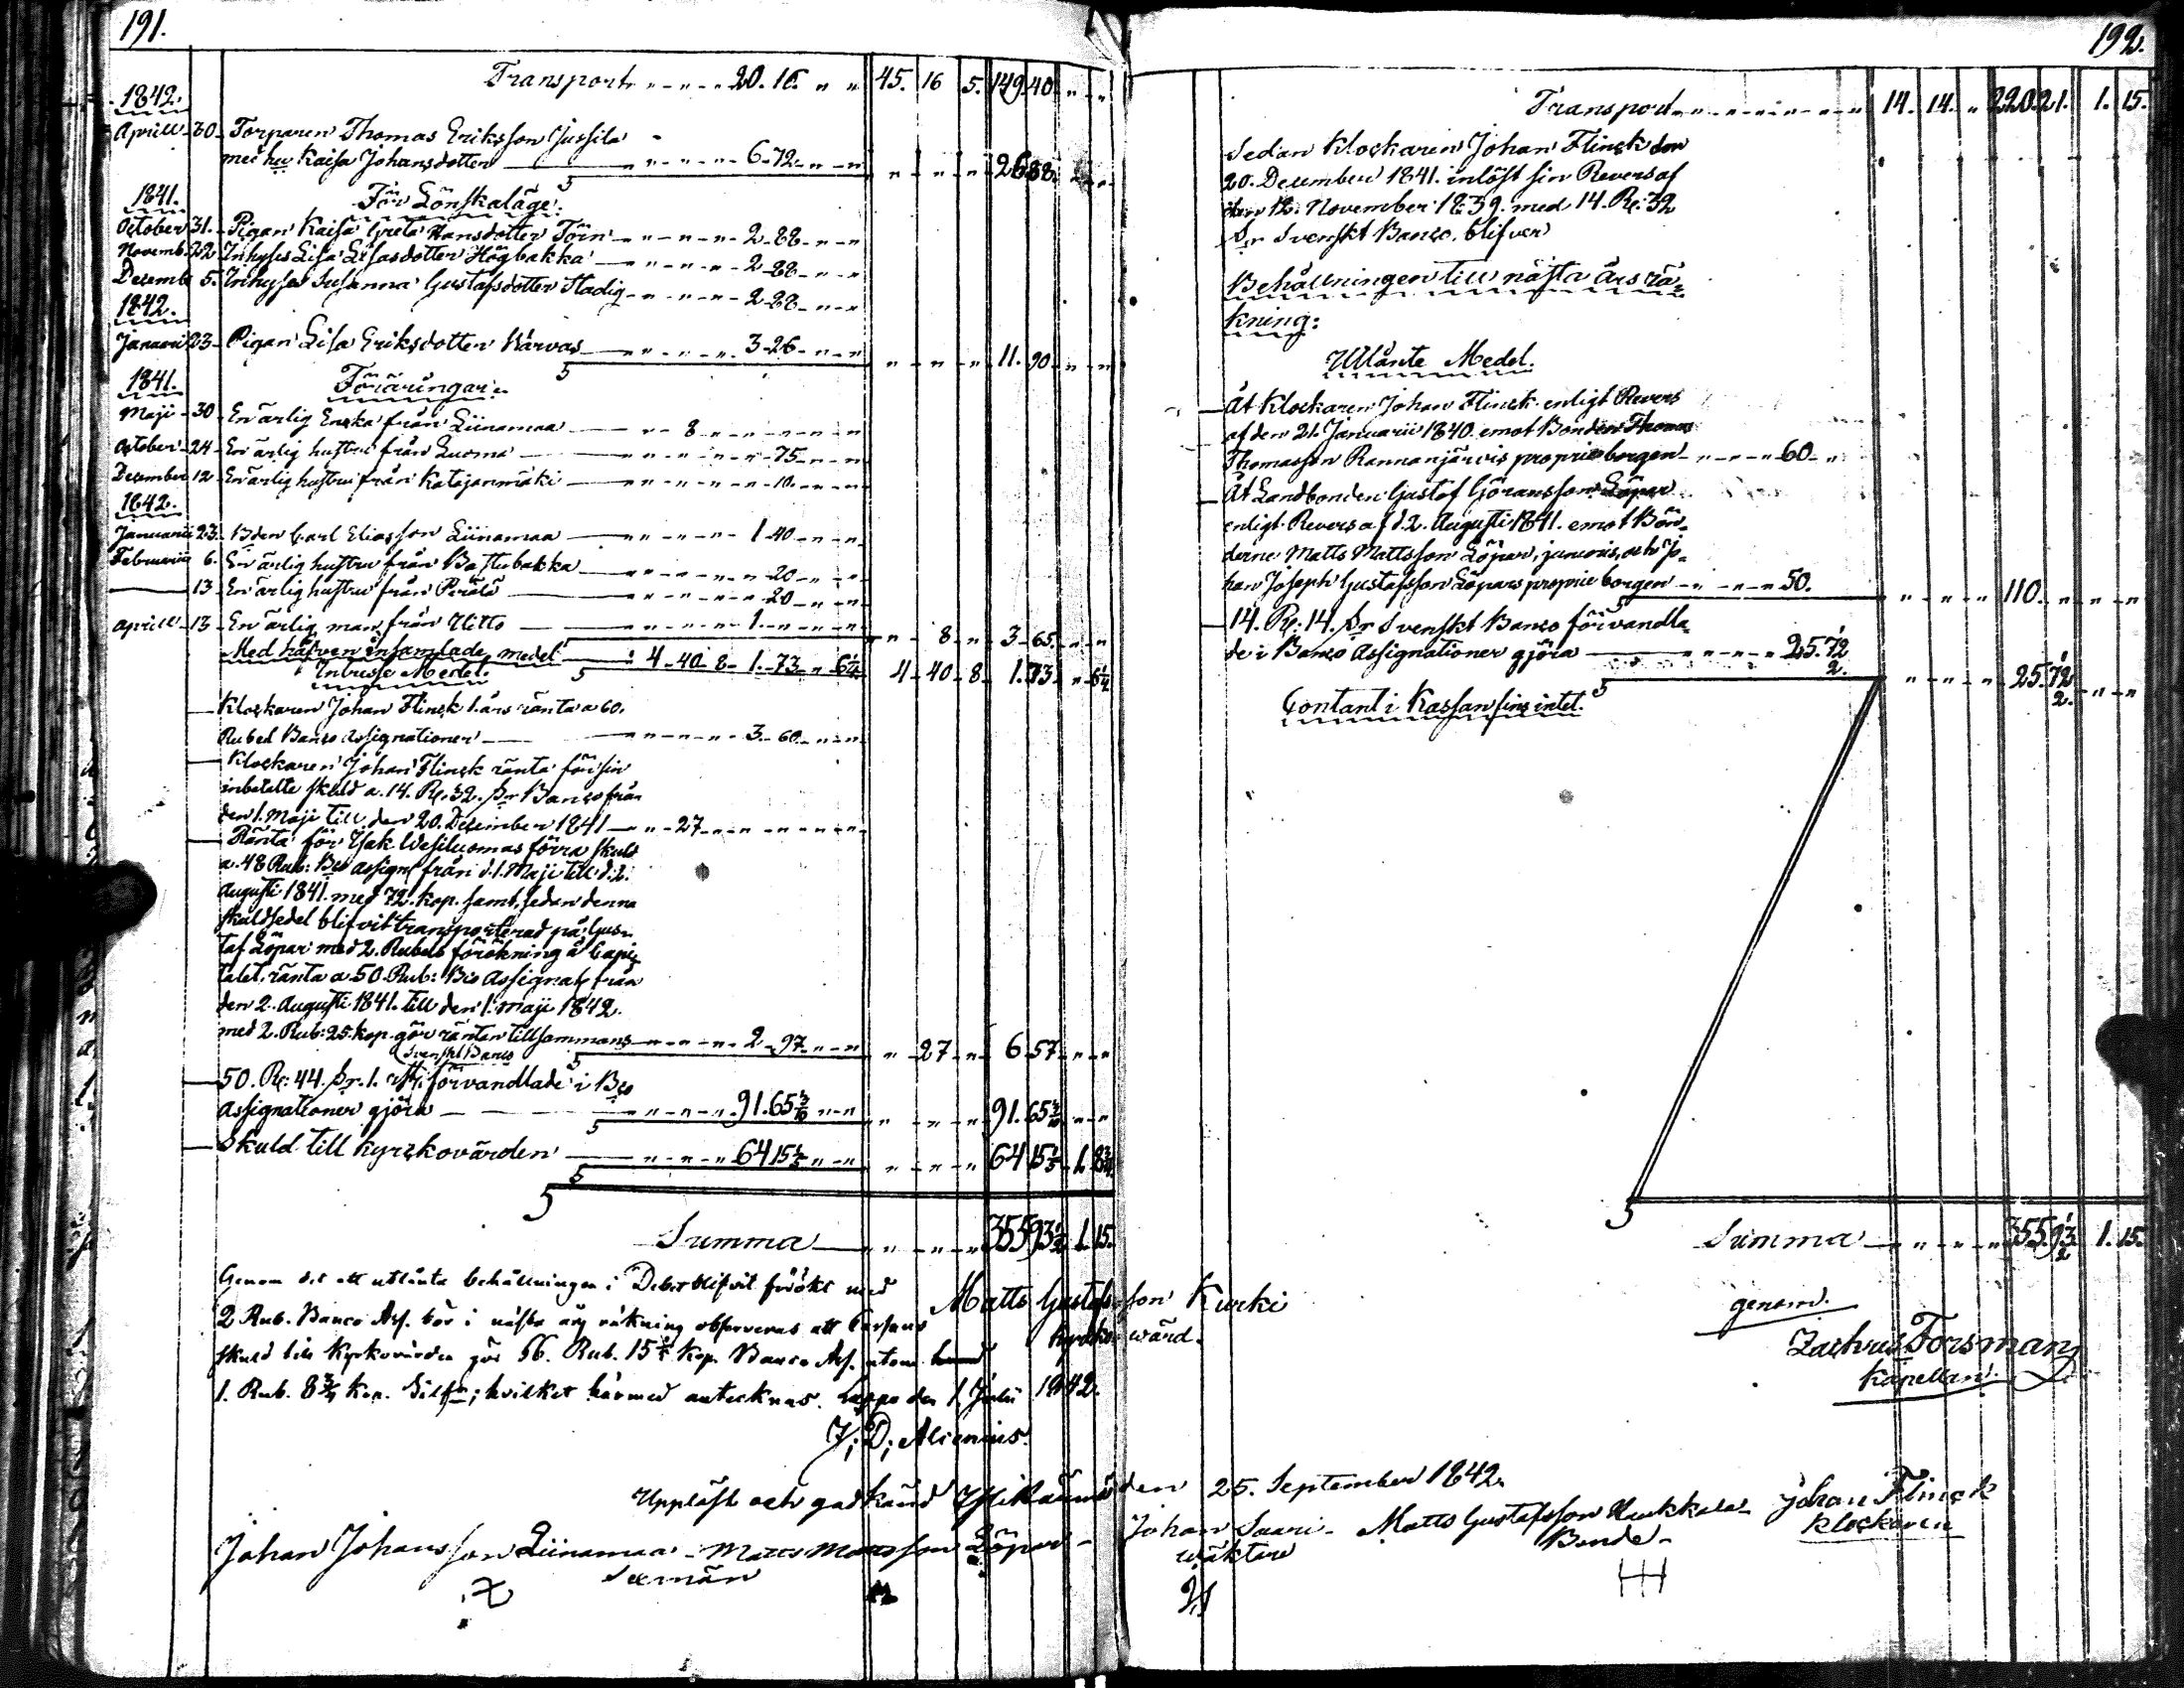 191.
Transport " " " 20. 16. " " 45. 16 5. 149. 40. " "
1842.
Aprill 30 Torparen Thomas Eriksson Jussila
med hu Kaisa Johansdotter " " " 6-72 " " " " " 26 88 " "
1841. För Lönskaläge:
October 31. Pigan Kaisa Greta Hansdotter Törn " " " 2-88 " "
Novemb. 22 Inhyses Lisa Lisasdotter Högbakka " " " 2-88 " "
Decemb 5. Inhyses Susanna Gustafsdotter Stadig " " " 2-88 " "
1842.
Januarii 23 Pigan Lisa Eriksdotter Karvas " " " 3-26 " " " " " 11. 90 " "
1841. Föräringar:
Maji 30 En ärlig Enska från Liinamaa " " 8 " " " "
October 24 En ärlig hustru från Luoma " " " " 75 " "
December 12 En ärlig hustru från Katajanmäki " " " " 10 " "
1842.
Januarii 23. Bden Carl Eliasson Liinamaa " " " 1-40 " "
Februarii 6. En ärlig hustru från Bastubakka " " " " 20 " "
13 En ärlig hustru från Perälä " " " " 20 " "
Aprill 13 En ärlig man från Uitto " " " 1 " " " " 8 " 3-65 " "
Med håfven insamlade medel 4-40-8-1-73 " 6¼ 4-40-8 1.73 " 6¼
Inbusse Medel.
Klockaren Johan Flinck 1. års ränta a 60.
Rubel Banco Assignationer " " " 3-60 " "
Klockaren Johan Flinck ränta för sin
inbetalte skuld a. 14. Rr. 32. sr Banco från
den 1. Maji till den 20. December 1841 " 27 " " " "
Ränta för Isak Wesiluomas förra skuld
a. 48 Rub: Bco Assign från d. 1. Maji till d: 2.
Augusti 1841. med 72. kop. samt, sedan denna
skuldsedel blifvit transporterad på Gus-
taf Löpar med 2. Rubels förökning å Capi-
talet, ränta a 50. Rub: Bco Assignat. från
den 2. Augusti 1841. till den 1. Maji 1842.
med 2. Rub: 25. kop. gör räntan tillsammans " " " 2-97 " " " 27 " 6 57 " "
Svenskt Banco
50. Rr: 44. sr. 1. förvandlade i Bco
Assignationer gjöra " " " 91. 65 3/10 " " " " " 91. 65 3/10 " "
Skuld till Kyrckovärden " " " 64 15 1/5 " " " " " 64 15 1/5 1. 8¾
Summa " " " 355 93½ 1. 15.
Genom det att utlånta behållningen i Debet blifvit förökt med
2 Rub. Banco Ass. bör i nästa års räkning observeras att Cassans
skuld till Kyrkovärden gör 66. Rub. 15 1/5 kop. Banco Ass. utom
1. Rub. 8¾ kop. Silfr; hvilket härmed antecknas. Lappo den 1 Julii 1842.
J: D; Alcenius.
Matts Gustafsson Kurki
Kyrcko wärd.
Uppläst och godkänd den 25. September 1842.
Johan Johansson Liinamaa - Matts Mattsson Löpar - Johan Saari - Matts Gustafsson
Sexmän wäktare Bonde
192.
Transport " " " " 14. 14. " 220. 21. 1. 15.
Sedan Klockaren Johan Flinck den
20. December 1841. inlöst sin Revers af
den 12. November 1839. med 14. Rr: 32
sr Svenskt Banco, blifver
Behållningen till nästa års rä-
kning:
Utlånte Medel.
Åt Klockaren Johan Flinck enligt Revers
af den 21. Januarii 1840. emot Bonden Thomas
Thomasson Rannanjärvis proprie borgen " " " 60 "
Åt Landbonden Gustaf Göransson Löpar
enligt Revers af d. 2. Augusti 1841. emot Bön-
derne Matts Mattsson Löpar, junioris, och Jo-
han Joseph Gustafsson Löpars proprie borgen " " 50. " " " 110. " " "
14. Rr: 14. sr Svenskt Banco förvandla-
de i Banco Assignationer gjöra " " " 25. 72½ " " " 25. 72½ " "
Contant i Kassan fins intet.
Summa " " " 355. 93½ 1. 15.
genom.
Zachris Forsman
Kapellan.
Johan Flinck
Klockaren